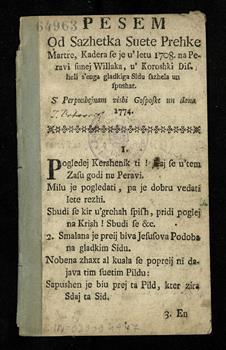 64963
PESEM
Od Sazhetka Suete Prehke
Martre, Kadera se je u' letu 1708. na Pe-
ravi sunej Willaka, u' Koroshki Dis.
heli s'enga gladkiga Sidu sazhela un
spushat.
S' Perpushejnam vishi Gosposke un dana
1774.
1.
Pogledej Kershenik ti! kaj se u'tem
Zasu godi nu Peravi.
Milu je pogledati, pa je dobru vedati
lete rezhi.
Sbudi se kir u'grehah spish, pridi poglej
na Krish! Sbudi se &c.
2. Smalana je preij biva Jesusova Podoba
na gladkim Sidu.
Nobena zhaxt al kuala se popreij ni da-
java tim suetim Pildu:
Sapushen je biu prej ta Pild, kter zira
Sdaj ta Sid.
3. En